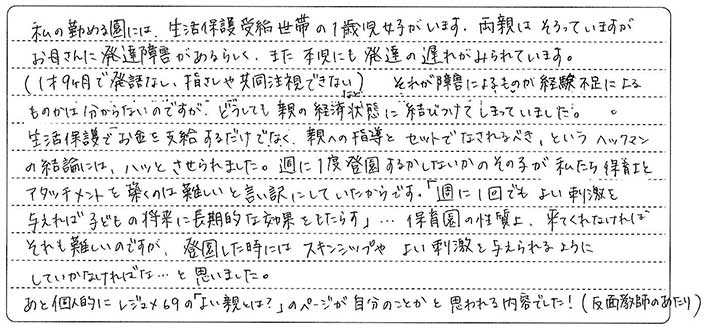 私の勤める園には、生活保護受給世帯の1歳児女子がいます。両親はそろっていますが
お母さんに発達障害があるらしく、また本児にも発達の遅れがみられています。
(1才9ヶ月で発語なし、指さしや共同注視できないなど) それが障害によるものか経験不足による
ものかは分からないのですが、どうしても親の経済状態に結びつけてしまっていました。
生活保護でお金を支給するだけでなく、親への指導とセットでなされるべき、というヘックマン
の結論には、ハッとさせられました。週に1度登園するかしないかのその子が私たち保育士と
アタッチメントを築くのは難しいと言い訳にしていたからです。「週に1回でもよい刺激を
与えれば子どもの将来に長期的な効果をもたらす」… 保育園の性質上、来てくれなければ
それも難しいのですが、登園した時にはスキンシップやよい刺激を与えられるように
していかなければな…と思いました。
あと個人的にレジュメ69の「よい親とは?」のページが自分のことかと思われる内容でした!(反面教師のあたり)